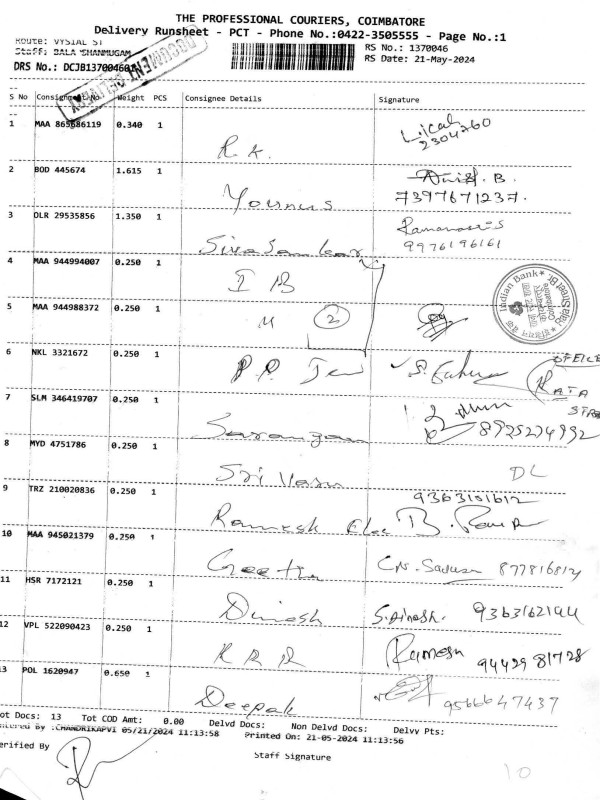 THE PROFESSIONAL COURIERS, COIMBATORE
Delivery Runsheet - PCT - Phone No.:0422-3505555 - Page No.:1
Route: VYSIAL ST
RS No.: 1370046
Staff: BALA SHANMUGAM
RS Date: 21-May-2024
DRS No.: DCJB1370046
S No Consignment No. Weight PCS Consignee Details Signature
1 MAA 865686119 0.340 1 R.K. 2304760
2 BOD 445674 1.615 1 Younus B. 7397671237.
3 OLR 29535856 1.350 1 Sivasankar 9976196161
4 MAA 944994007 0.250 1 I B
Indian Bank
5 MAA 944988372 0.250 1 M 2
6 NKL 3321672 0.250 1 P.P. Jew
OFFICE
7 SLM 346419707 0.250 1 Sarangan 8925274992
8 MYD 4751786 0.250 1 Sri Vasu DL
9 TRZ 210020836 0.250 1 Ramesh Elec 9363151612
10 MAA 945021379 0.250 1 Geetha 877816812
11 HSR 7172121 0.250 1 Dinesh S.Dinesh. 9363162144
12 VPL 522090423 0.250 1 R R R Ramesh 9442981728
13 POL 1620947 0.650 1 Deepak 9566647437
ot Docs: 13 Tot COD Amt: 0.00 Delvd Docs: Non Delvd Docs: Delvv Pts:
ntered By :CHANDRIKAPVI 05/21/2024 11:13:58 Printed On: 21-05-2024 11:13:56
erified By
Staff Signature
10